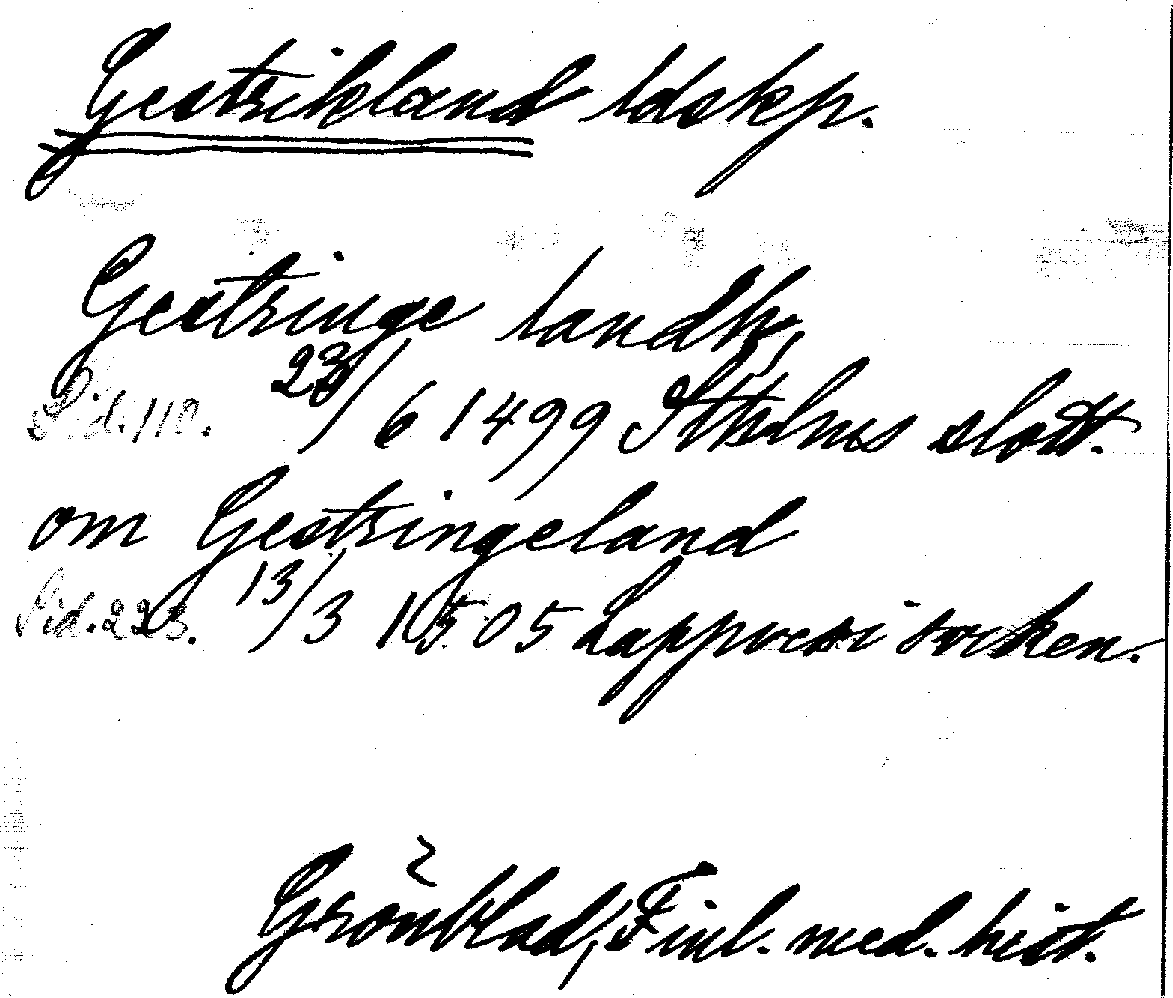 Gestrikland ldskp.
Gestringe landh,
Sid. 110. 23/6 1499 Sthlms slott.
om Gestringeland
Sid. 223. 13/3 1505 Lappvesi socken.
Grönblad, Finl. med. hist.